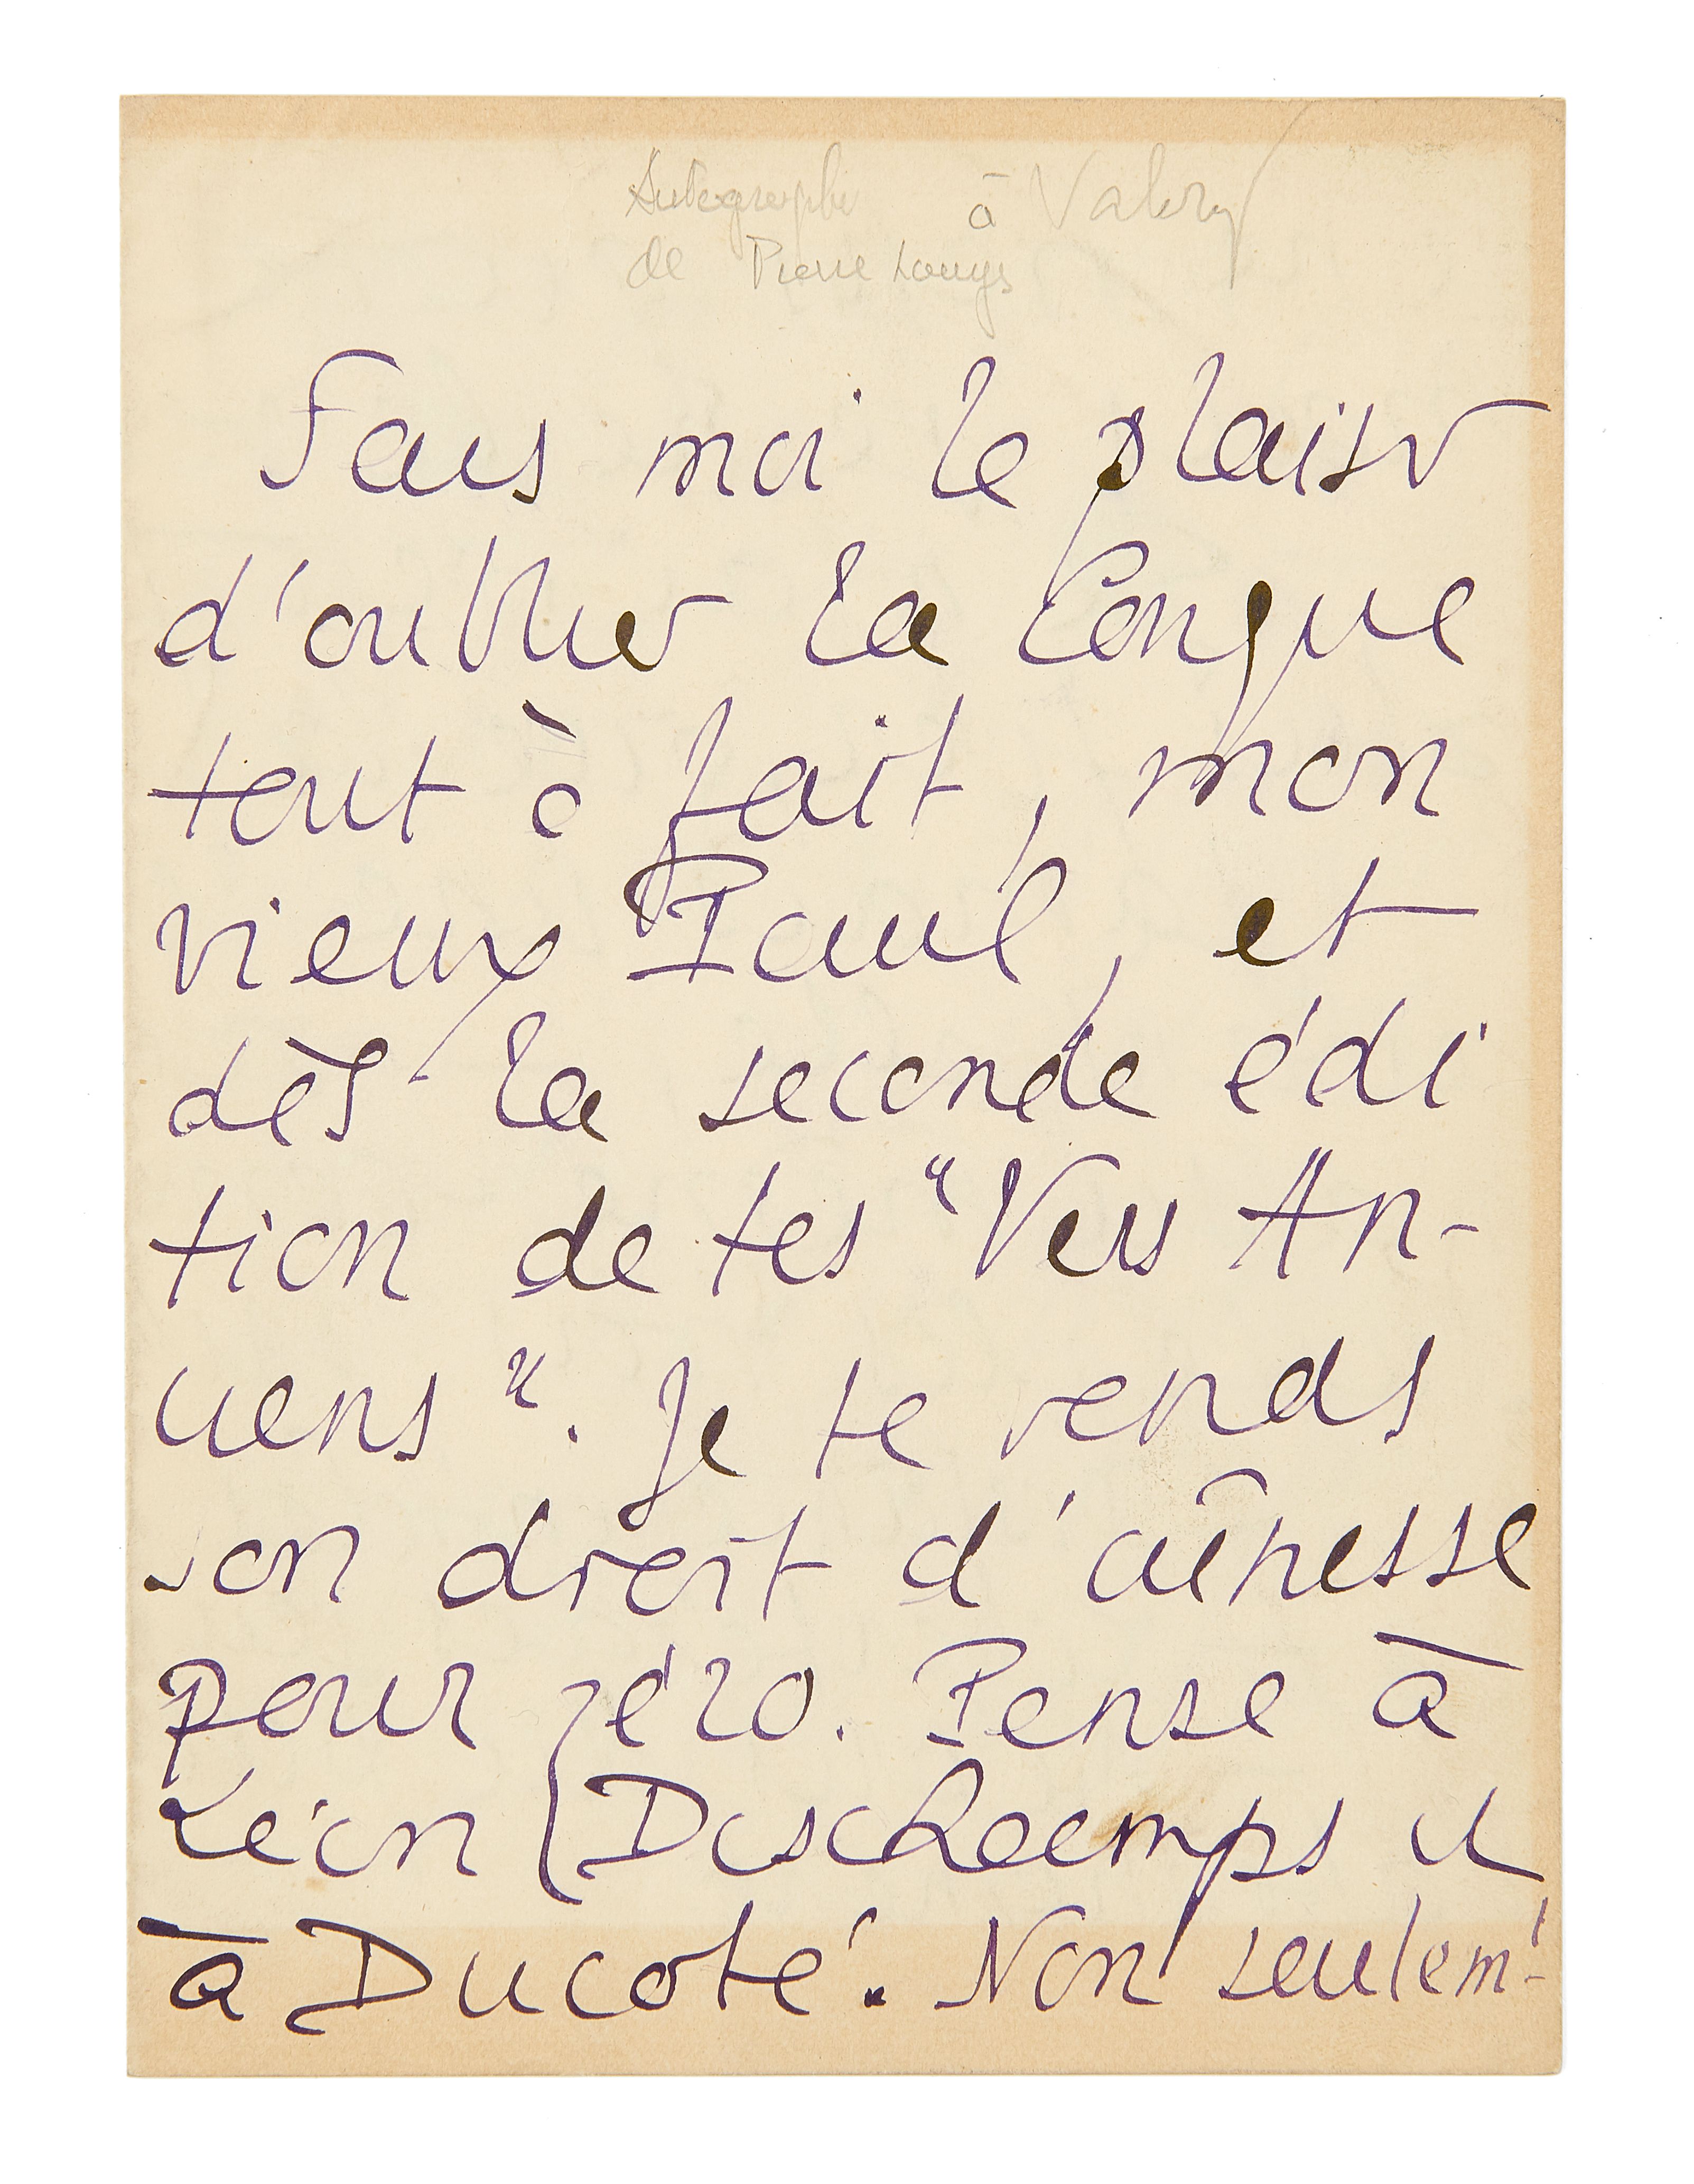 Autographe à Valéry
de Pierre Louys
Fais moi le plaisir
d'oublier la Conque
tout à fait, mon
vieux Paul, et
dès la seconde édi
tion de tes "Vers An-
ciens". Je te rends
son droit d'aînesse
pour zéro. Pense à
Léon (Deschamps et
à Ducoté. Non seulemt